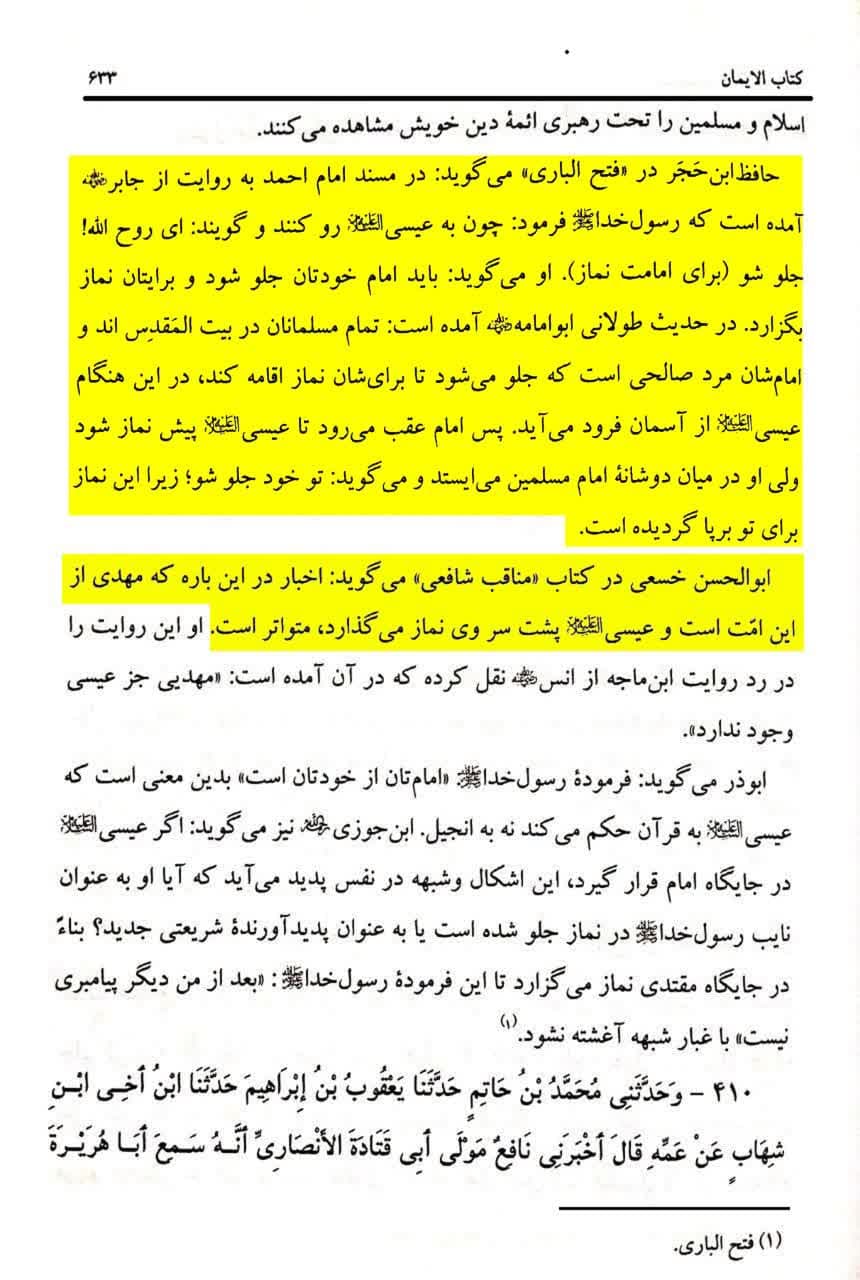 کتاب الایمان ۶۳۳
اسلام و مسلمین را تحت رهبری ائمهٔ دین خویش مشاهده می‌کنند.
حافظ ابن‌حَجَر در «فتح الباری» می‌گوید: در مسند امام احمد به روایت از جابر رضی الله عنه
آمده است که رسول‌خدا ﷺ فرمود: چون به عیسی علیه السلام رو کنند و گویند: ای روح الله!
جلو شو (برای امامت نماز). او می‌گوید: باید امام خودتان جلو شود و برایتان نماز
بگزارد. در حدیث طولانی ابوامامه رضی الله عنه آمده است: تمام مسلمانان در بیت المَقدِس اند و
امام‌شان مرد صالحی است که جلو می‌شود تا برای‌شان نماز اقامه کند، در این هنگام
عیسی علیه السلام از آسمان فرود می‌آید. پس امام عقب می‌رود تا عیسی علیه السلام پیش نماز شود
ولی او در میان دوشانهٔ امام مسلمین می‌ایستد و می‌گوید: تو خود جلو شو؛ زیرا این نماز
برای تو برپا گردیده است.
ابوالحسن خسعی در کتاب «مناقب شافعی» می‌گوید: اخبار در این باره که مهدی از
این امّت است و عیسی علیه السلام پشت سر وی نماز می‌گذارد، متواتر است. او این روایت را
در رد روایت ابن‌ماجه از انس رضی الله عنه نقل کرده که در آن آمده است: «مهدیی جز عیسی
وجود ندارد».
ابوذر می‌گوید: فرمودهٔ رسول‌خدا ﷺ «امام‌تان از خودتان است» بدین معنی است که
عیسی علیه السلام به قرآن حکم می‌کند نه به انجیل. ابن‌جوزی رحمه الله نیز می‌گوید: اگر عیسی علیه السلام
در جایگاه امام قرار گیرد، این اشکال وشبهه در نفس پدید می‌آید که آیا او به عنوان
نایب رسول‌خدا ﷺ در نماز جلو شده است یا به عنوان پدیدآورندهٔ شریعتی جدید؟ بناءً
در جایگاه مقتدی نماز می‌گزارد تا این فرمودهٔ رسول‌خدا ﷺ: «بعد از من دیگر پیامبری
نیست» با غبار شبهه آغشته نشود.(۱)
۴۱۰ - وَحَدَّثَنِی مُحَمَّدُ بْنُ حَاتِمٍ حَدَّثَنَا یَعْقُوبُ بْنُ إِبْرَاهِیمَ حَدَّثَنَا ابْنُ أَخِی ابْنِ
شِهَابٍ عَنْ عَمِّهِ قَالَ أَخْبَرَنِی نَافِعٌ مَوْلَی أَبِی قَتَادَةَ الأَنْصَارِیِّ أَنَّهُ سَمِعَ أَبَا هُرَیْرَةَ
(۱) فتح الباری.